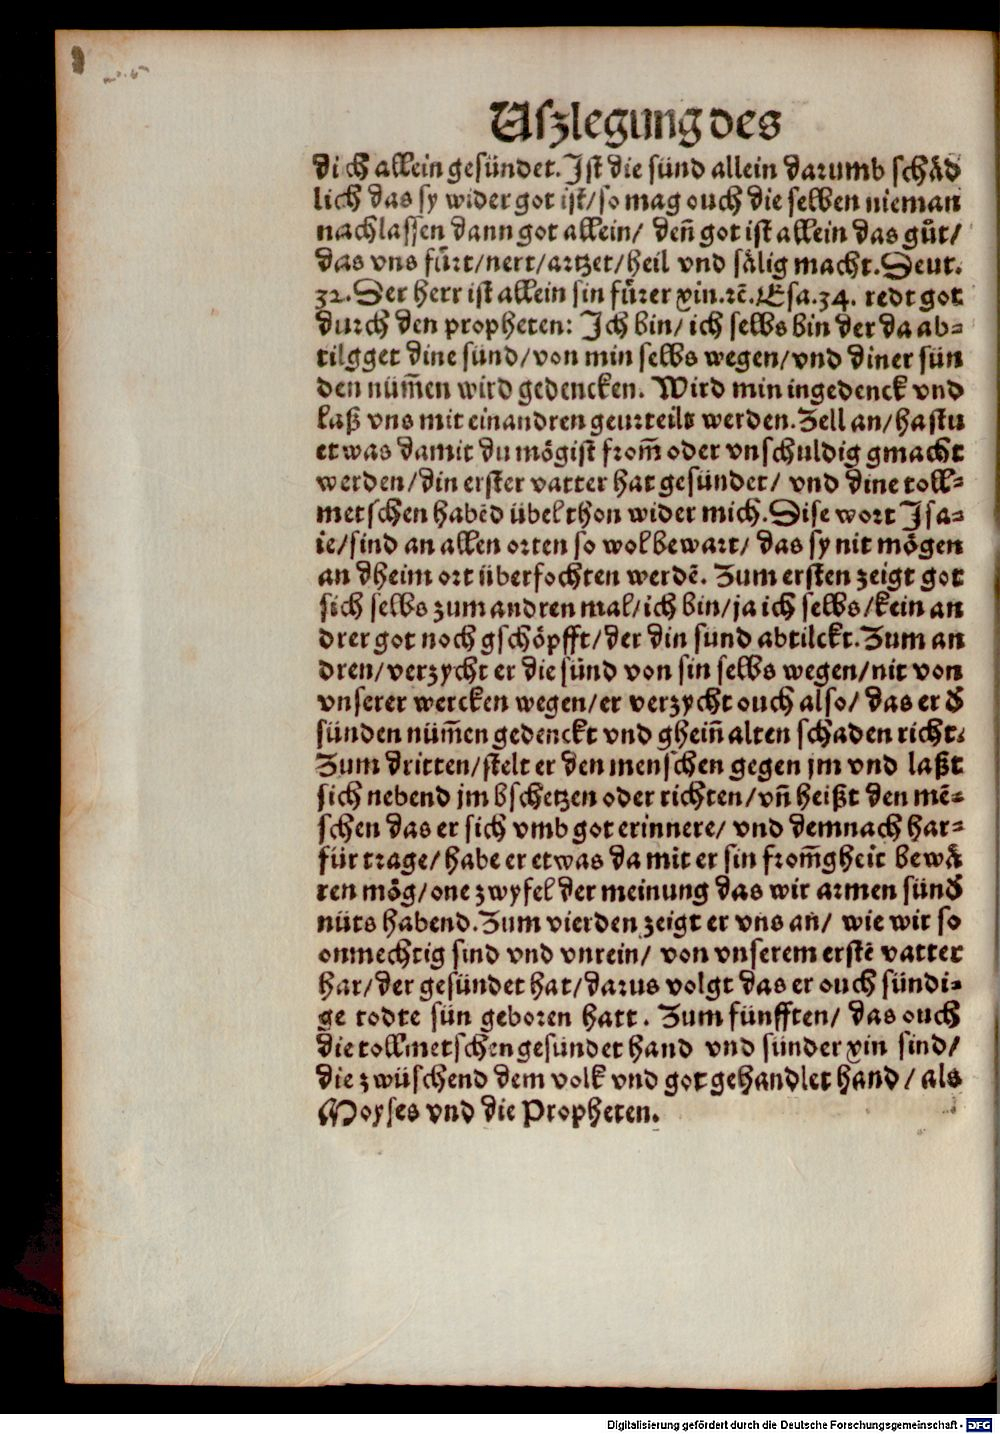 Uſzlegung des
dich allein geſündet. Jſt die ſünd allein darumb ſchåd
lich das ſy wider got iſt/ ſo mag ouch die ſelben nieman
nachlaſſen dann got allein/ deñ got iſt allein das gůt/
das vns fürt/ nert/ artzet/ heil vnd ſålig macht. Deut.
32. Der herr iſt allein ſin fürer xin. ꝛc̄. Eſa. 34. redt got
durch den propheten: Ich bin/ ich ſelbs bin der da ab⸗
tilgget dine ſünd/ von min ſelbs wegen/ vnd diner ſün
den nüm̃en wird gedencken. Wird min ingedenck vnd
laß vns mit einandren geurteilt werden. Zell an/ haſtu
etwas damit du mögiſt from̃ oder vnſchuldig gmacht
werden/ din erſter vatter hat geſündet/ vnd dine toll⸗
metſchen habēd übel thon wider mich. Diſe wort Jſa⸗
ie/ ſind an allen orten ſo wol bewart/ das ſy nit mögen
an dheim ort überfochten werdē. Zum erſten zeigt got
ſich ſelbs zum andren mal/ ich bin/ ja ich ſelbs/ kein an
drer got noch gſchöpfft/ der din ſünd abtilckt. Zum an
dren/ verzycht er die ſünd von ſin ſelbs wegen/ nit von
vnſerer wercken wegen/ er verzycht ouch alſo/ das er đ
ſünden nüm̃en gedenckt vnd ghein̄ alten ſchaden richt.
Zum dritten/ ſtelt er den menſchen gegen jm vnd laßt
ſich nebend jm bſchetzen oder richten/ vñ heißt den mē⸗
ſchen das er ſich vmb got erinnere/ vnd demnach har⸗
für trage/ habe er etwas da mit er ſin from̃gheit bewå
ren mög/ one zwyfel der meinung das wir armen ſünđ
nüts habend. Zum vierden zeigt er vns an/ wie wir ſo
onmechtig ſind vnd vnrein/ von vnſerem erſtē vatter
har/ der geſündet hat/ darus volgt das er ouch ſündi⸗
ge todte ſün geboren hatt. Zum fünfften/ das ouch
die tollmetſchen geſündet hand vnd ſünder xin ſind/
die zwüſchend dem volk vnd got gehandlet hand/ als
Moyſes vnd die Propheten.
Digitalisierung gefördert durch die Deutsche Forschungsgemeinschaft - DFG